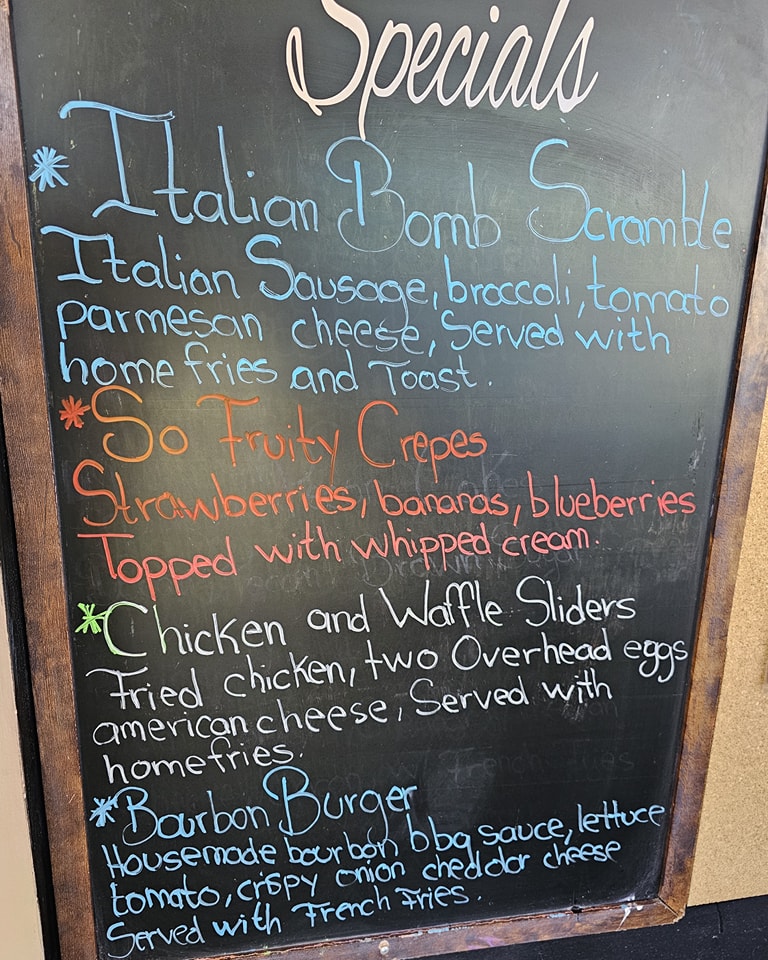 Specials
*Italian Bomb Scramble
Italian Sausage, broccoli, tomato
parmesan cheese, Served with
home fries and Toast.
*So Fruity Crepes
Strawberries, bananas, blueberries
Topped with whipped cream.
*Chicken and Waffle Sliders
Fried chicken, two Overhead eggs
american cheese, Served with
homefries.
*Bourbon Burger
Housemade bourbon bbq sauce, lettuce
tomato, crispy onion cheddar cheese
Served with French Fries.